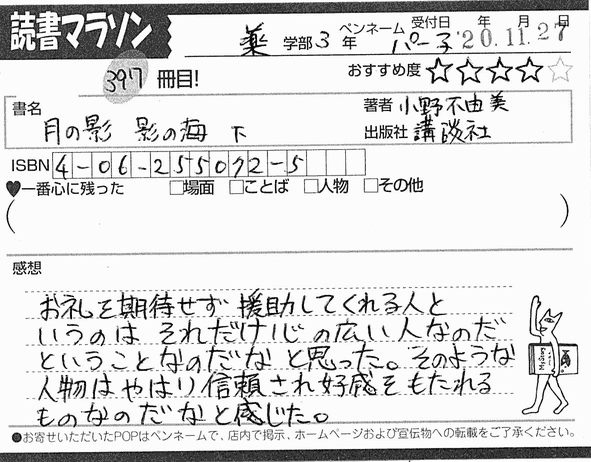 読書マラソン
薬 学部 3 年 ペンネーム パー子 受付日 年 月 日 '20.11.27
397 冊目! おすすめ度 ★★★★☆
書名 著者 小野不由美
月の影 影の海 下 出版社 講談社
ISBN 4-06-255072-5
♥一番心に残った □場面 □ことば □人物 □その他
( )
感想
お礼を期待せず 援助してくれる人と
いうのは それだけ心の広い人なのだ
ということなのだな と思った。そのような
人物は やはり信頼され好感をもたれる
ものなのだなと感じた。
●お寄せいただいたPOPはペンネームで、店内で掲示、ホームページおよび宣伝物への転載をご了承ください。